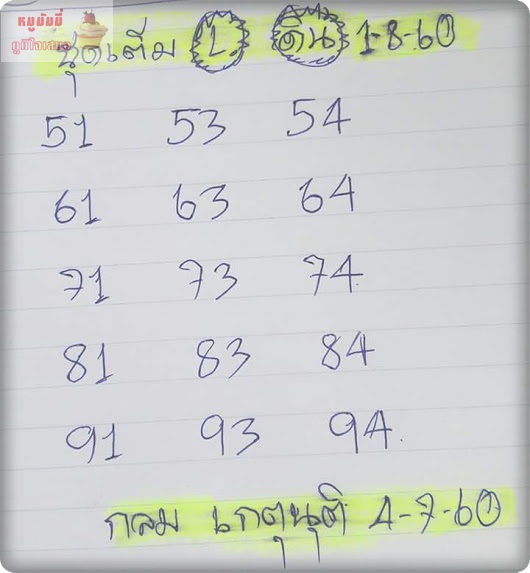 หมูมัมมี่
ภูมิใจเสนอ
ชุดเต็ม ล. ดิ้น 1-8-60
51 53 54
61 63 64
71 73 74
81 83 84
91 93 94.
กลม เกตุนุติ 4-7-60